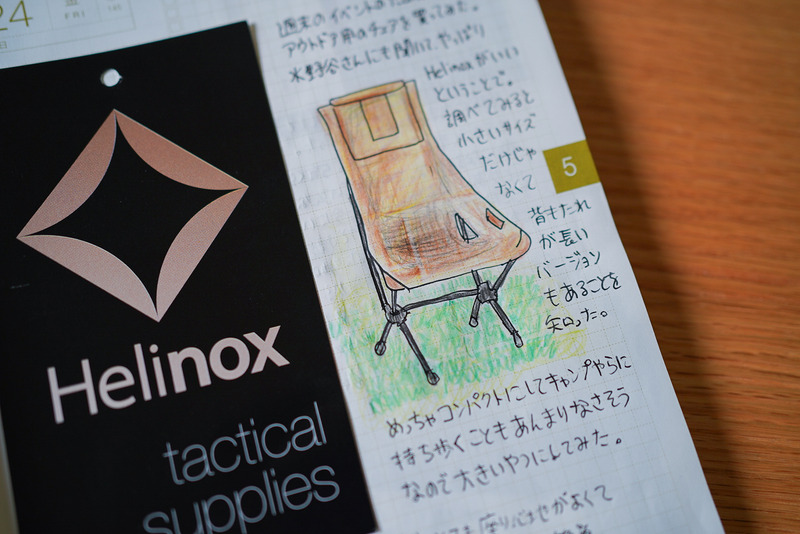 24
FRI
Helinox
tactical
supplies
週末のイベントの
アウトドア用のチェアを買ってみた。
水野谷さんにも聞いて、やっぱり
Helinoxがいい
ということで。
調べてみると
小さいサイズ
だけじゃ
なくて
背もたれ
が長い
バージョン
もあることを
知った。
5
めっちゃコンパクトにしてキャンプやらに
持ち歩くこともあんまりなさそう
なので大きいやつにしてみた。
座り心地がよくて